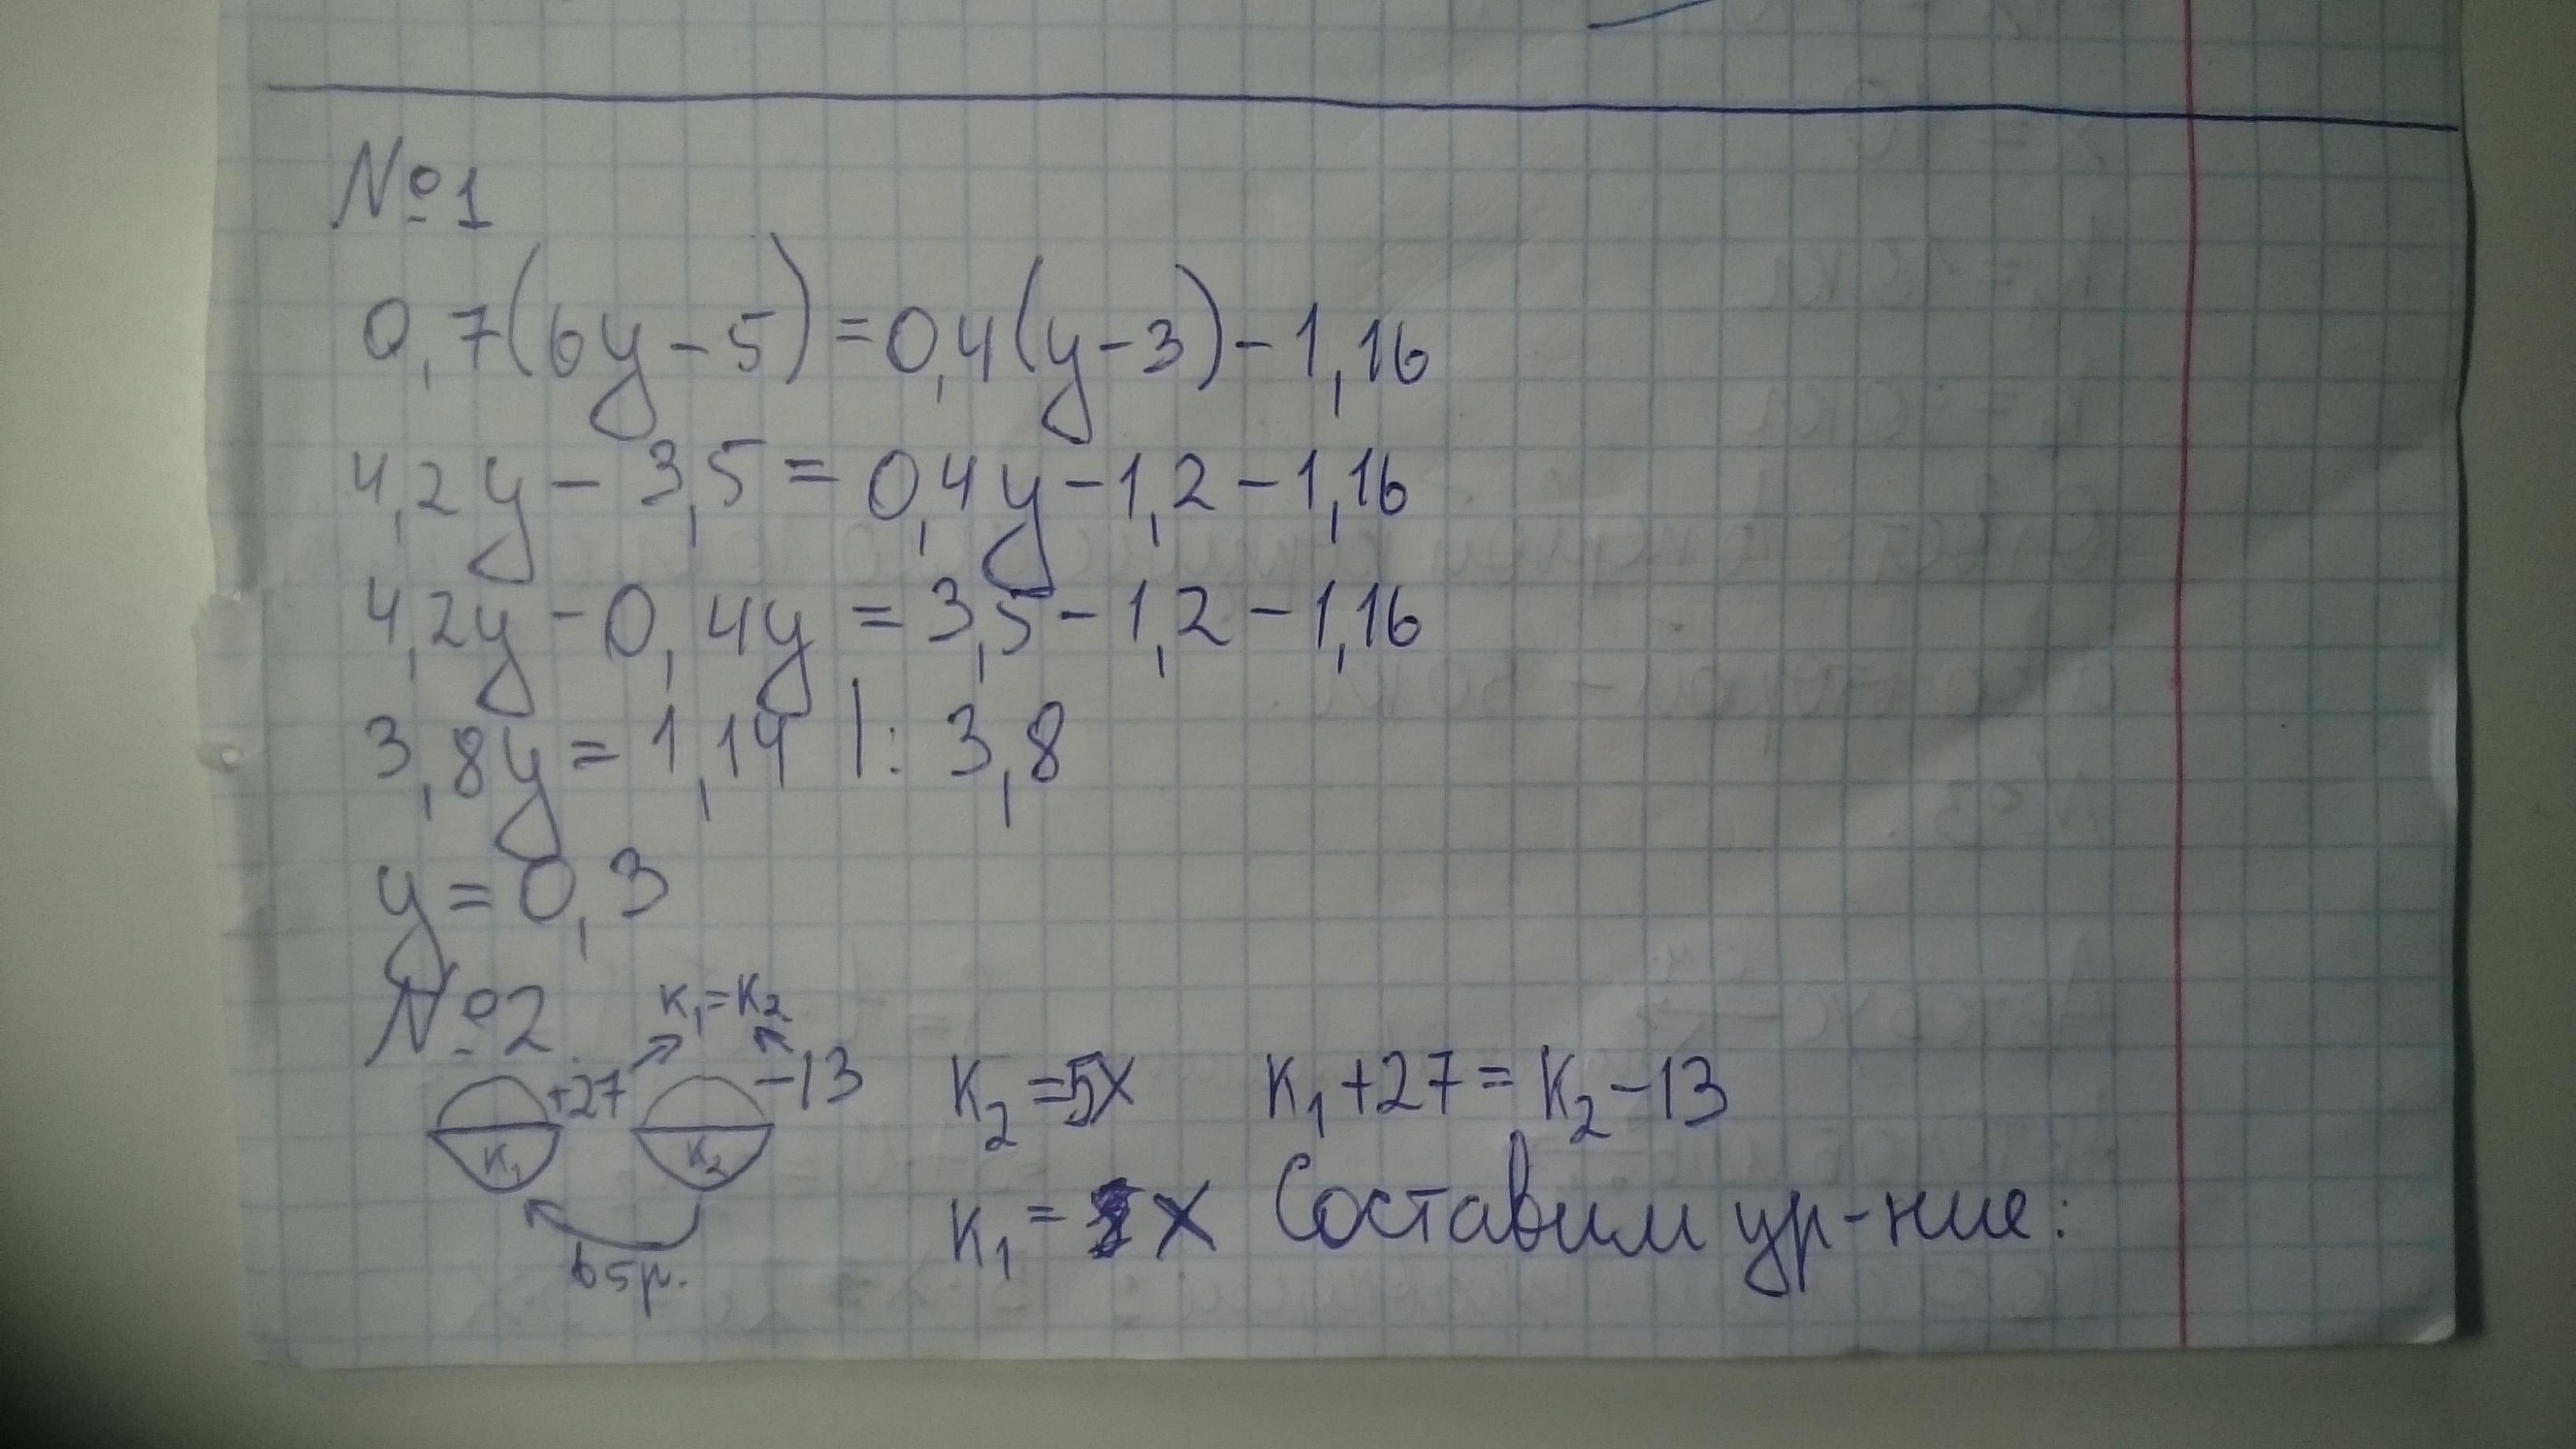 №1
0,7(6y-5)=0,4(y-3)-1,16
4,2y-3,5=0,4y-1,2-1,16
4,2y-0,4y=3,5-1,2-1,16
3,8y=1,14 |: 3,8
y=0,3
№2.
K₁=K₂
+27 -13 K₂=5x K₁+27=K₂-13
K₁ K₂
K₁= x Составим ур-ние:
в 5 р.